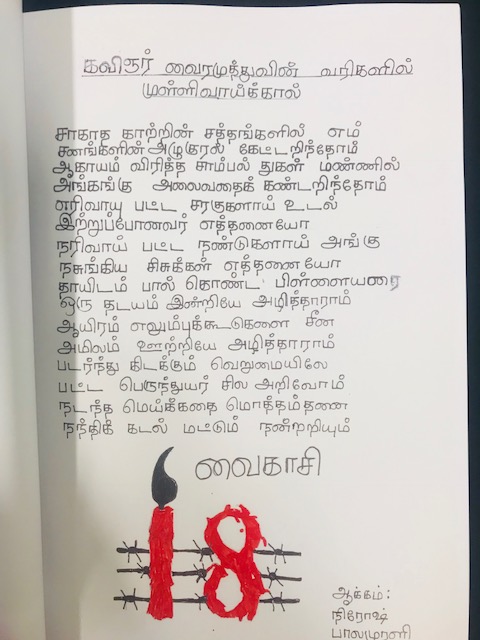 கவிஞர் வைரமுத்துவின் வரிகளில்
முள்ளிவாய்க்கால்
சாகாத காற்றின் சத்தங்களில் எம்
சனங்களின் அழுகுரல் கேட்டறிந்தோம்
ஆகாயம் விரித்த சாம்பல் துகள் மண்ணில்
அங்கங்கு அலைவதைக் கண்டறிந்தோம்
எரிவாயு பட்ட சரகுகளாய் உடல்
இற்றுப்போனவர் எத்தனையோ
நரிவாய் பட்ட நண்டுகளாய் அங்கு
நசுங்கிய சிசுக்கள் எத்தனையோ
தாயிடம் பால் கொண்ட பிள்ளையரை
ஒரு தடயம் இன்றியே அழித்தாராம்
ஆயிரம் எலும்புக்கூடுகளை சீன
அமிலம் ஊற்றியே அழித்தாராம்
படர்ந்து கிடக்கும் வெறுமையிலே
பட்ட பெருந்துயர் சில அறிவோம்
நடந்த மெய்க்கதை மொத்தம்தனை
நந்திக் கடல் மட்டும் நன்றறியும்
வைகாசி
18
ஆக்கம் :
நிரோஷ்
பாலமுரளி